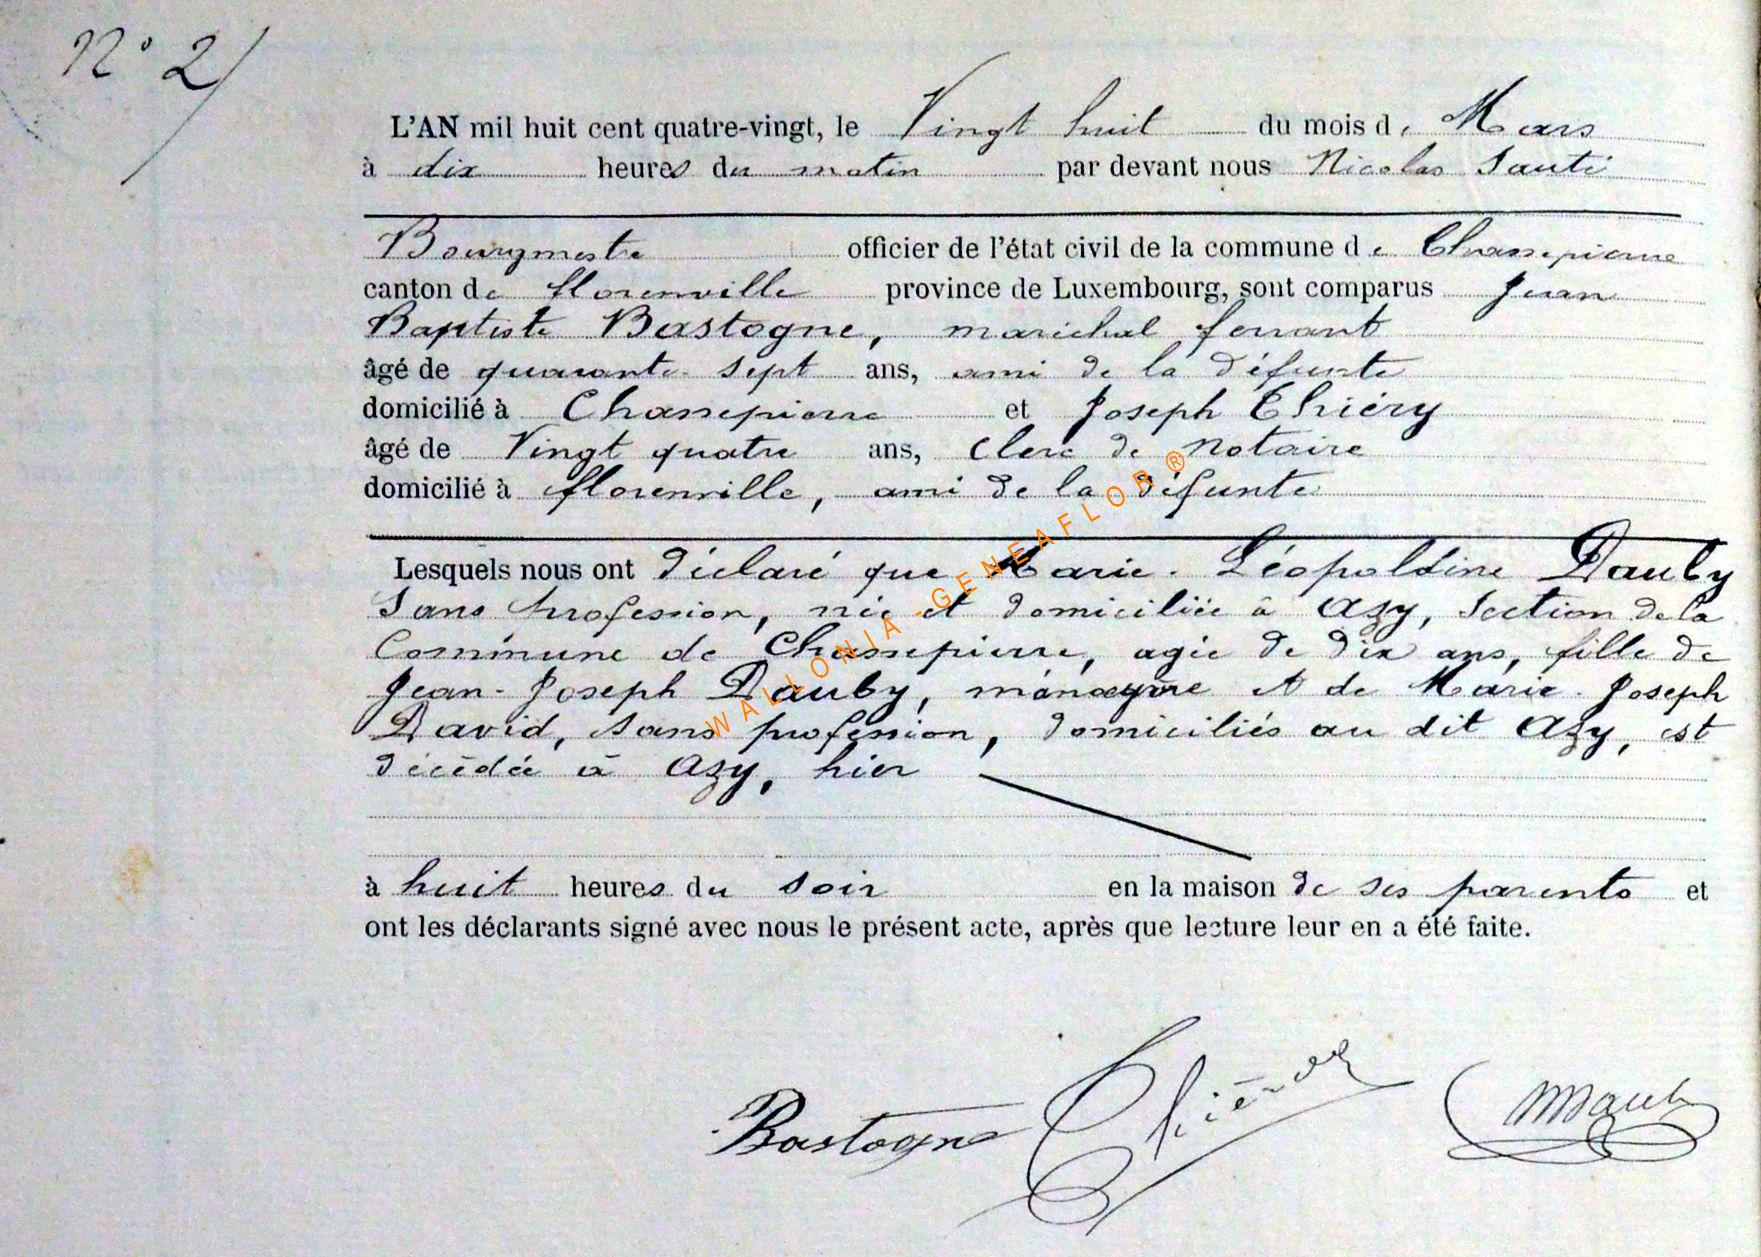 N° 2
L'AN mil huit cent quatre-vingt, le Vingt huit du mois de Mars
à dix heures du matin par devant nous Nicolas Sauti
Bourgmestre officier de l'état civil de la commune de Chassepierre
canton de florenville province de Luxembourg, sont comparus Jean
Baptiste Bastogne, maréchal ferrant
âgé de quarante sept ans, ami de la défunte
domicilié à Chassepierre et Joseph Thiéry
âgé de Vingt quatre ans, Clerc de Notaire
domicilié à florenville, ami de la défunte
Lesquels nous ont déclaré que Marie-Léopoldine Dauby
Sans profession, née et domiciliée à Azy, Section de la
Commune de Chassepierre, agée de dix ans, fille de
Jean-Joseph Dauby, et de Marie-Joseph
David, sans profession, domiciliés au dit Azy, est
décédée à Azy, hier
à huit heures du soir en la maison de ses parents et
ont les déclarants signé avec nous le présent acte, après que lecture leur en a été faite.
Bastogne Thiéry
WALLONIA-GENEAFLOR®